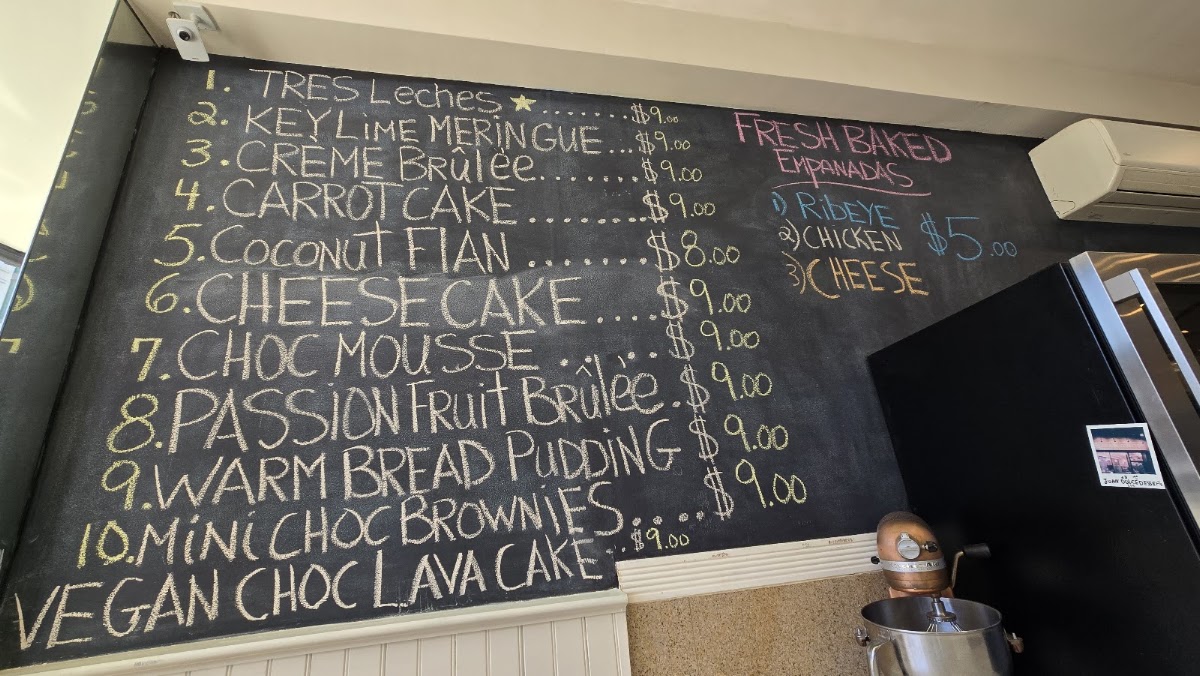 1. TRES Leches ........ $9.00
2. KEY Lime MERINGUE... $9.00
3. CREME Brûlèe....... $9.00
4. CARROT CAKE .......... $9.00
5. Coconut FlAN ........ $8.00
6. CHEESE CAKE.... $9.00
7. CHOC MOUSSE ...... $9.00
8. PASSION Fruit Brûlèe. $9.00
9. WARM BREAD PUDDING $9.00
10. MiNi CHOC BROWNIES.... $9.00
VEGAN CHOC LAVA CAKE .. $9.00
FRESH BAKED
EMPANADAS
1) RibEYE
2) CHICKEN $5.00
3) CHEESE